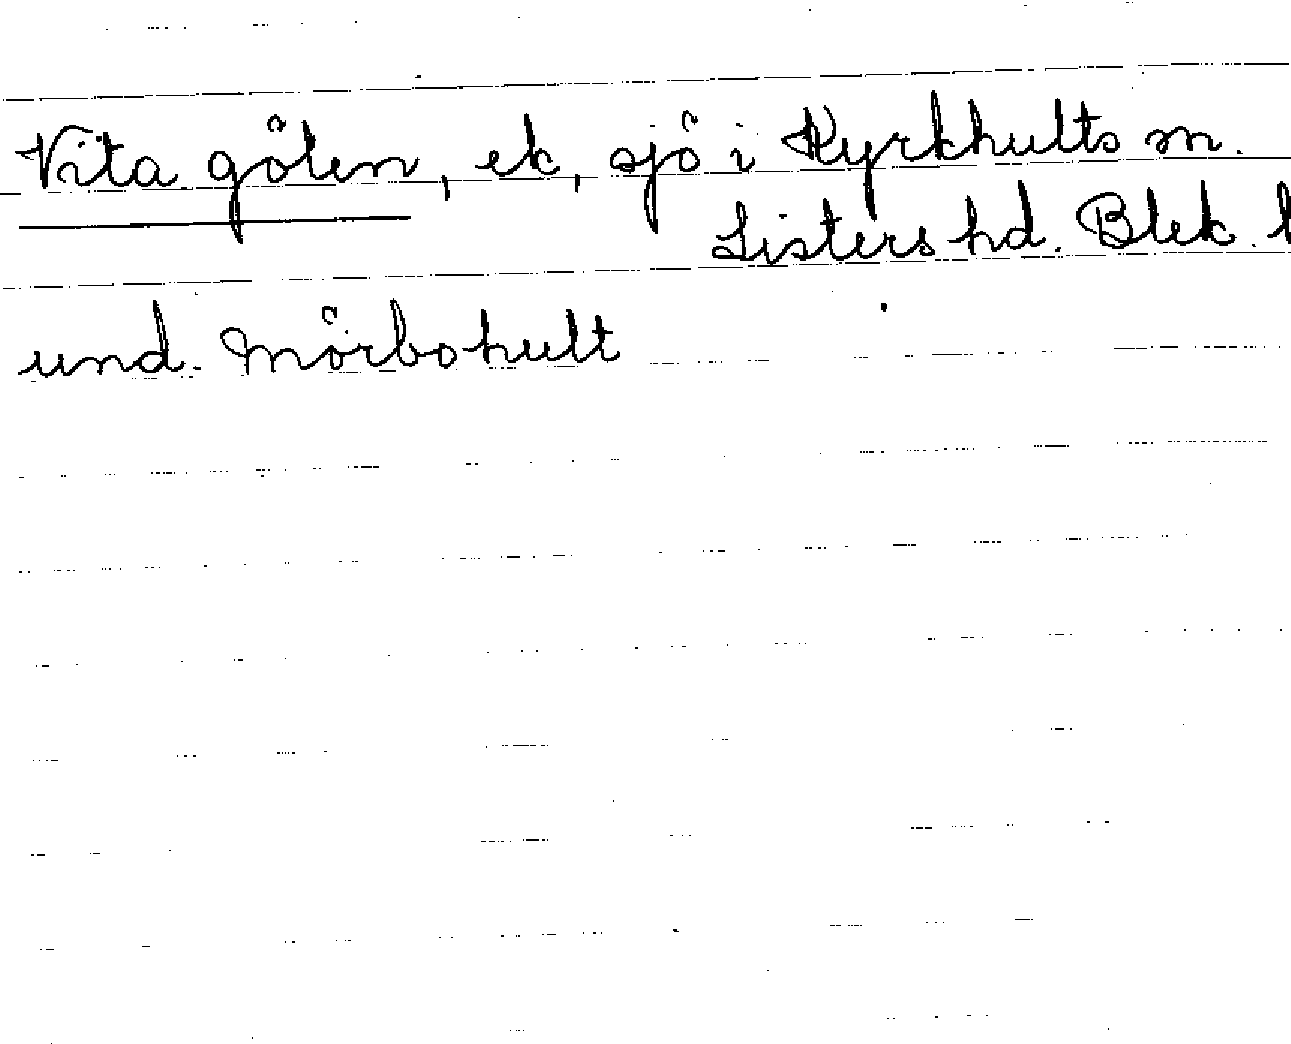 Vita gölen, ek, sjö i Kyrkhults sn.
Listers hd. Blek. l
und. Mörbohult